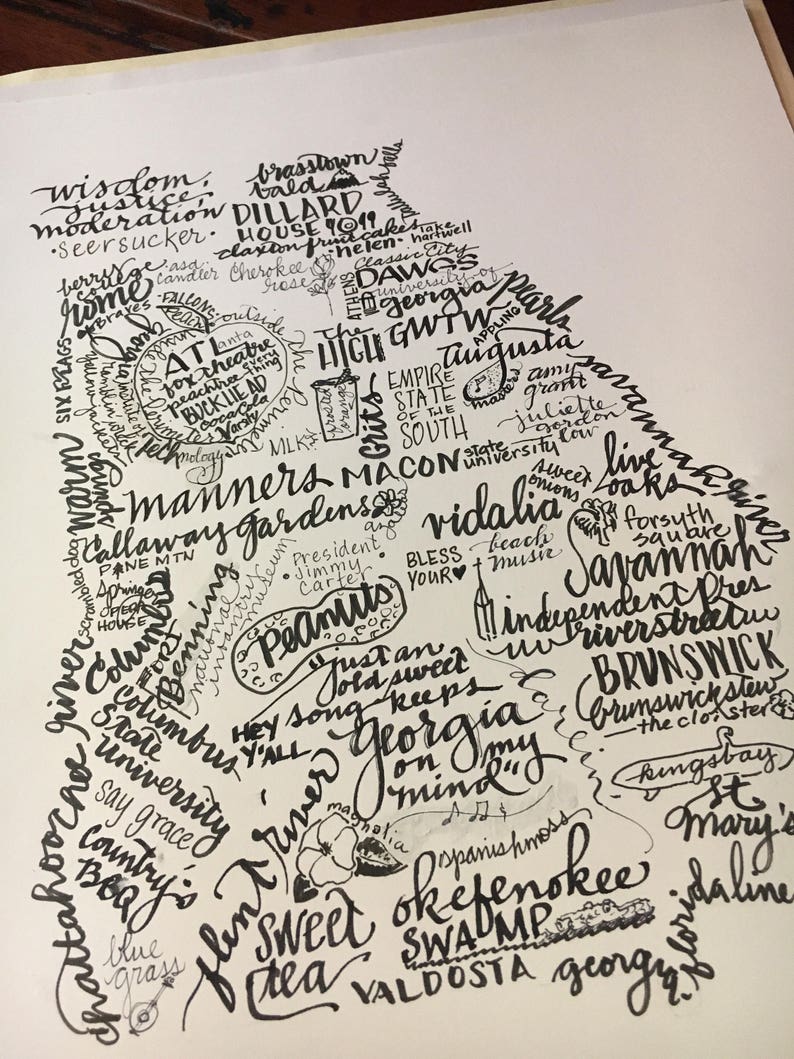 wisdom,
justice,
moderation
·seersucker·
brasstown
bald
DILLARD
HOUSE 1919
claxton fruitcakes
·helen·
lake
hartwell
berry
college
rome
asa
candler
Cherokee
rose
Classic City
DAWGS
ATHENS
university of
georgia
pearls
BRAVES
FALCONS
peach
outside the perimeter
SIX FLAGS
ATLanta
fox theatre
peachtree every
thing
BUCKHEAD
coca cola
Varsity
Technology
the
HIGH
GWTW
APPLING
augusta
masters
amy
grant
EMPIRE
STATE
OF THE
SOUTH
juliette
gordon
low
frosted
orange
Grits
MLK
savannah river
warm
springs
manners
MACON
state
university
sweet
onions
live
oaks
callaway gardens
azaleas
vidalia
forsyth
square
PINE MTN
scrambled dog
Springer
OPERA
HOUSE
President
jimmy
carter
BLESS
YOUR
beach
music
Savannah
Columbus
FORT
Benning
national
infantry museum
Peanuts
independent pres
riverstreet
"just an
old sweet
song keeps
georgia
on my
mind"
HEY
Y'ALL
BRUNSWICK
brunswick stew
the cloister
columbus
State
university
chattahoochee river
kingsbay
St
Mary's
say grace
country's
BBQ
flint river
magnolia
spanishmoss
okefenokee
SWAMP
blue
grass
sweet
tea
VALDOSTA
georgia-florida line